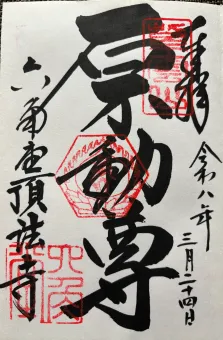 奉拝
令和八年
三月二十四日
不動尊
六角堂頂法寺